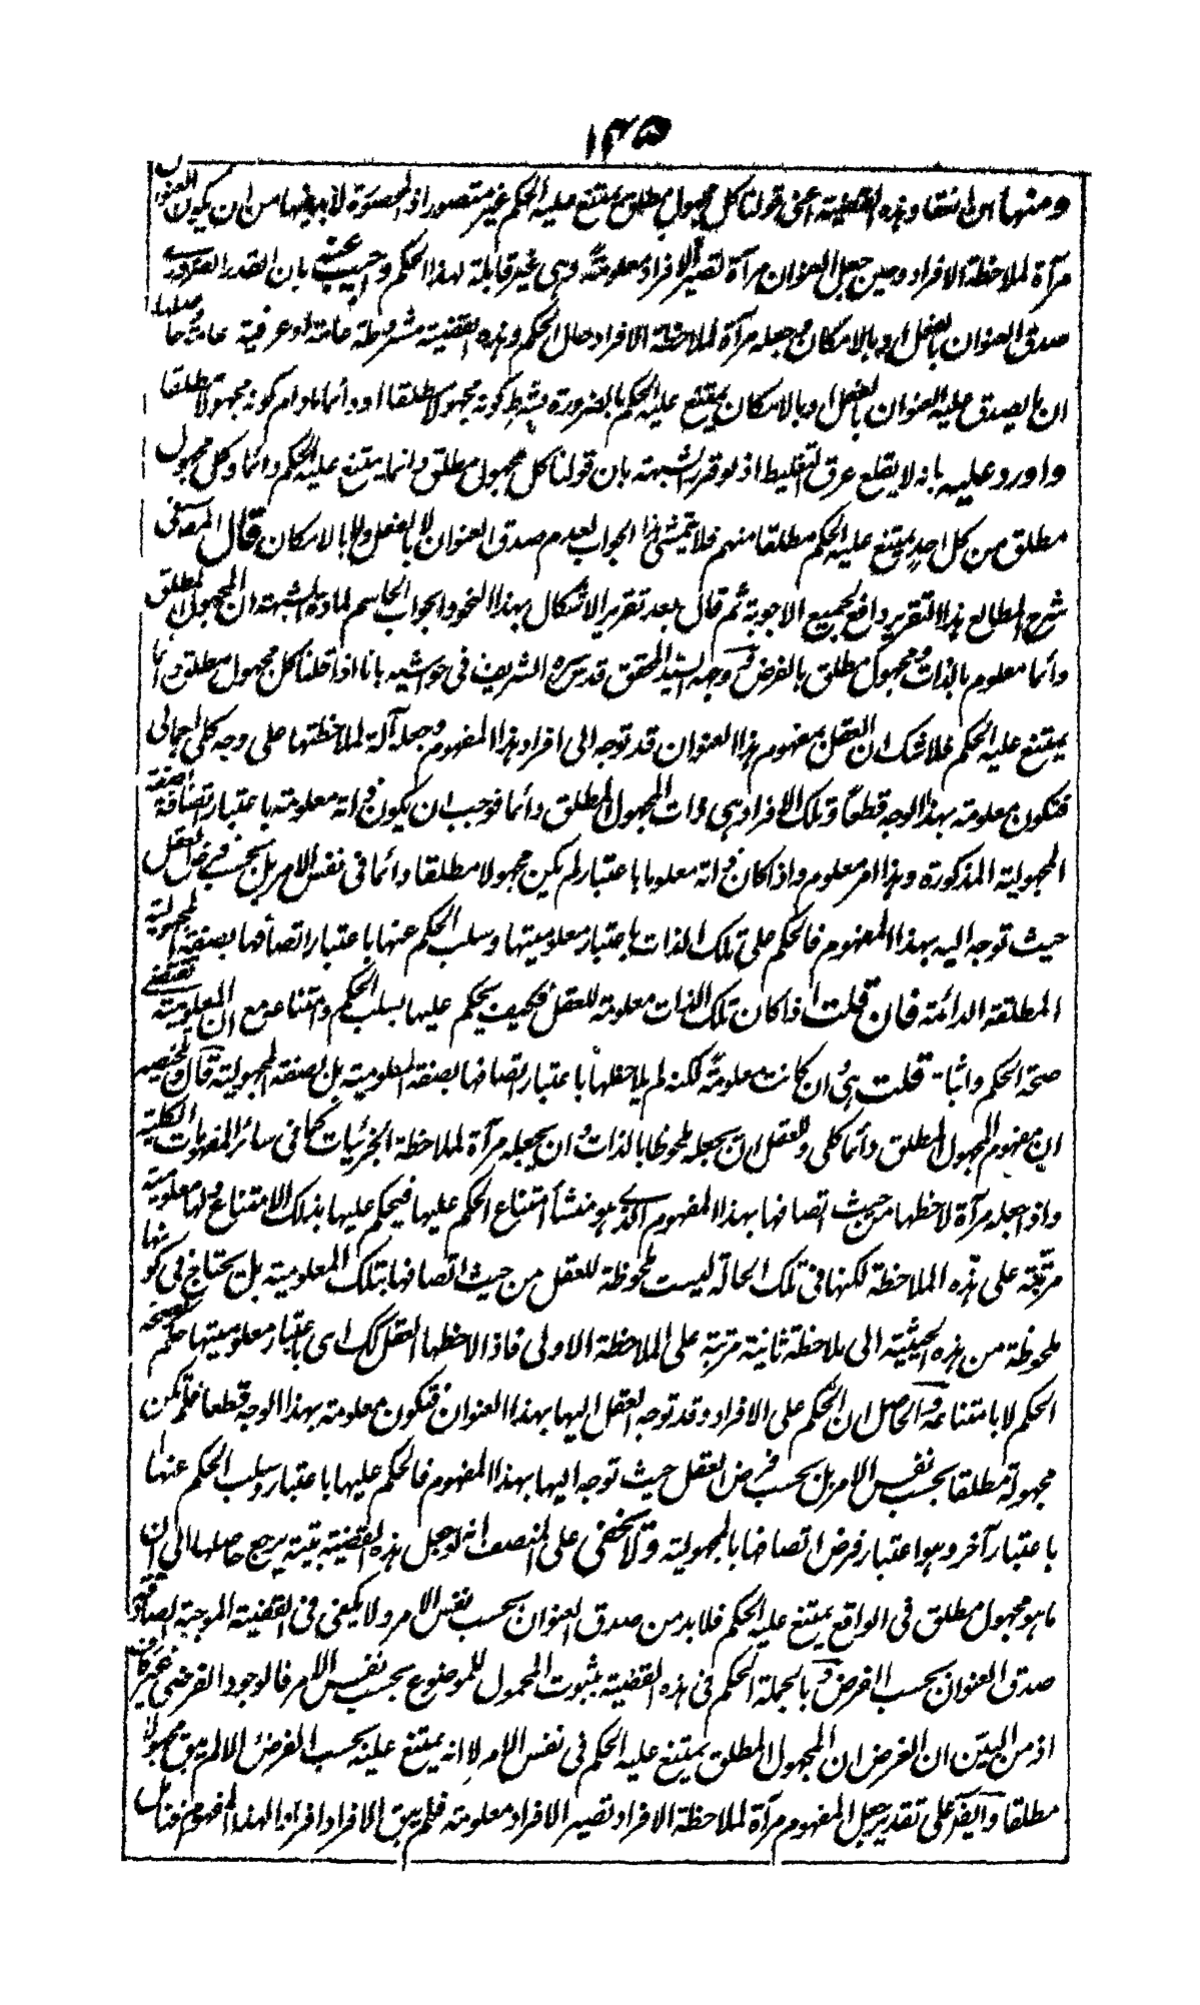 ۱۳۵
ومنها ان انعقاد هذه القضية اعنى قولنا كل مجهول مطلق يمتنع عليه الحكم غير متصور اذ المحصورة لا بد فيها من ان يكون العنوان
مرآة لملاحظة الافراد وحين جعل العنوان مرآة تصير الافراد معلومة وهى غير قابلة لهذا الحكم واجيب عنه بان القدر الضرورى
صدق العنوان بالفعل او بالامكان وجعله مرآة لملاحظة الافراد حال الحكم وهذه القضية مشروطة عامة او عرفية عامة حاصلها
ان ما يصدق عليه العنوان بالفعل او بالامكان يمتنع عليه الحكم بالضرورة بشرط كونه مجهولا مطلقا او دائما مادام كونه مجهولا مطلقا
واورد عليه بانه لا يقلع عرق التغليط اذ لو قرر الشبهة بان قولنا كل مجهول مطلق دائما يمتنع عليه الحكم دائما وكل مجهول
مطلق من كل احد يمتنع عليه الحكم مطلقا منهم فلا يتمشى هذا الجواب لعدم صدق العنوان لا بالفعل ولا بالامكان قال المصنف فى
شرح المطالع هذا التقرير دافع لجميع الاجوبة ثم قال بعد تقرير الاشكال بهذا النحو والجواب الحاسم لمادة الشبهة ان المجهول المطلق
دائما معلوم بالذات ومجهول مطلق بالفرض ووجه السيد المحقق قدس سره الشريف فى حواشيه بانا اذا قلنا كل مجهول مطلق دائما
يمتنع عليه الحكم فلا شك ان العقل بمفهوم هذا العنوان قد توجه الى افراد هذا المفهوم وجعله آلة لملاحظتها على وجه كلى اجمالى
فتكون معلومة بهذا الوجه قطعا وتلك الافراد هى ذات المجهول المطلق دائما فوجب ان يكون ذاته معلومة باعتبار اتصافه بصفة
المجهولية المذكورة وهذا امر معلوم واذا كان ذاته معلوما باعتبار لم يكن مجهولا مطلقا دائما فى نفس الامر بل بحسب فرض العقل
حيث توجه اليه بهذا المفهوم فالحكم على تلك الذات باعتبار معلوميتها وسلب الحكم عنها باعتبار اتصافها بصفة المجهولية
المطلقة الدائمة فان قلت اذا كان تلك الذات معلومة للعقل فكيف يحكم عليها بسلب الحكم وامتناعه مع ان المعلومية تقتضى
صحة الحكم واثباته قلت هى وان كانت معلومة لكنه لم يلاحظها باعتبار اتصافها بصفة المعلومية بل بصفة المجهولية قال وتلخيصه
ان مفهوم المجهول المطلق دائما كلى وللعقل ان يجعله ملحوظا بالذات وان يجعله مرآة لملاحظة الجزئيات كما فى سائر المفهومات الكلية
واذا جعله مرآة لاحظها من حيث اتصافها بهذا المفهوم الذى هو منشأ امتناع الحكم عليها فيحكم عليها بذلك الامتناع ولها معلومية
مترتبة على هذه الملاحظة لكنها فى تلك الحالة ليست ملحوظة للعقل من حيث اتصافها بتلك المعلومية بل يحتاج فى كونها
ملحوظة من هذه الحيثية الى ملاحظة ثانية مترتبة على الملاحظة الاولى فاذا لاحظها العقل كك اى باعتبار معلوميتها حكم بصحة
الحكم لا بامتناعه والحاصل ان الحكم على الافراد وقد توجه العقل اليها بهذا العنوان فتكون معلومة بهذا الوجه قطعا فلم تكن
مجهولة مطلقا بحسب نفس الامر بل بحسب فرض العقل حيث توجه اليها بهذا المفهوم فالحكم عليها باعتبار وسلب الحكم عنها
باعتبار آخر وهو اعتبار فرض اتصافها بالمجهولية ولا يخفى على المنصف انه لو جعل هذه القضية بتية يرجع حاصلها الى ان
ما هو مجهول مطلق فى الواقع يمتنع عليه الحكم فلا بد من صدق العنوان بحسب نفس الامر ولا يكفى فى القضية الموجبة الصادقة
صدق العنوان بحسب الفرض وبالجملة الحكم فى هذه القضية بثبوت المحمول للموضوع بحسب نفس الامر فالوجود الفرضى غير كاف فيه
اذ من البين ان الغرض ان المجهول المطلق يمتنع عليه الحكم فى نفس الامر لا انه يمتنع عليه بحسب الفرض والا لم يبق مجهولا
مطلقا وايضا على تقدير جعل المفهوم مرآة لملاحظة الافراد تصير الافراد معلومة فلم يبق الافراد افرادا لهذا المفهوم فتامل